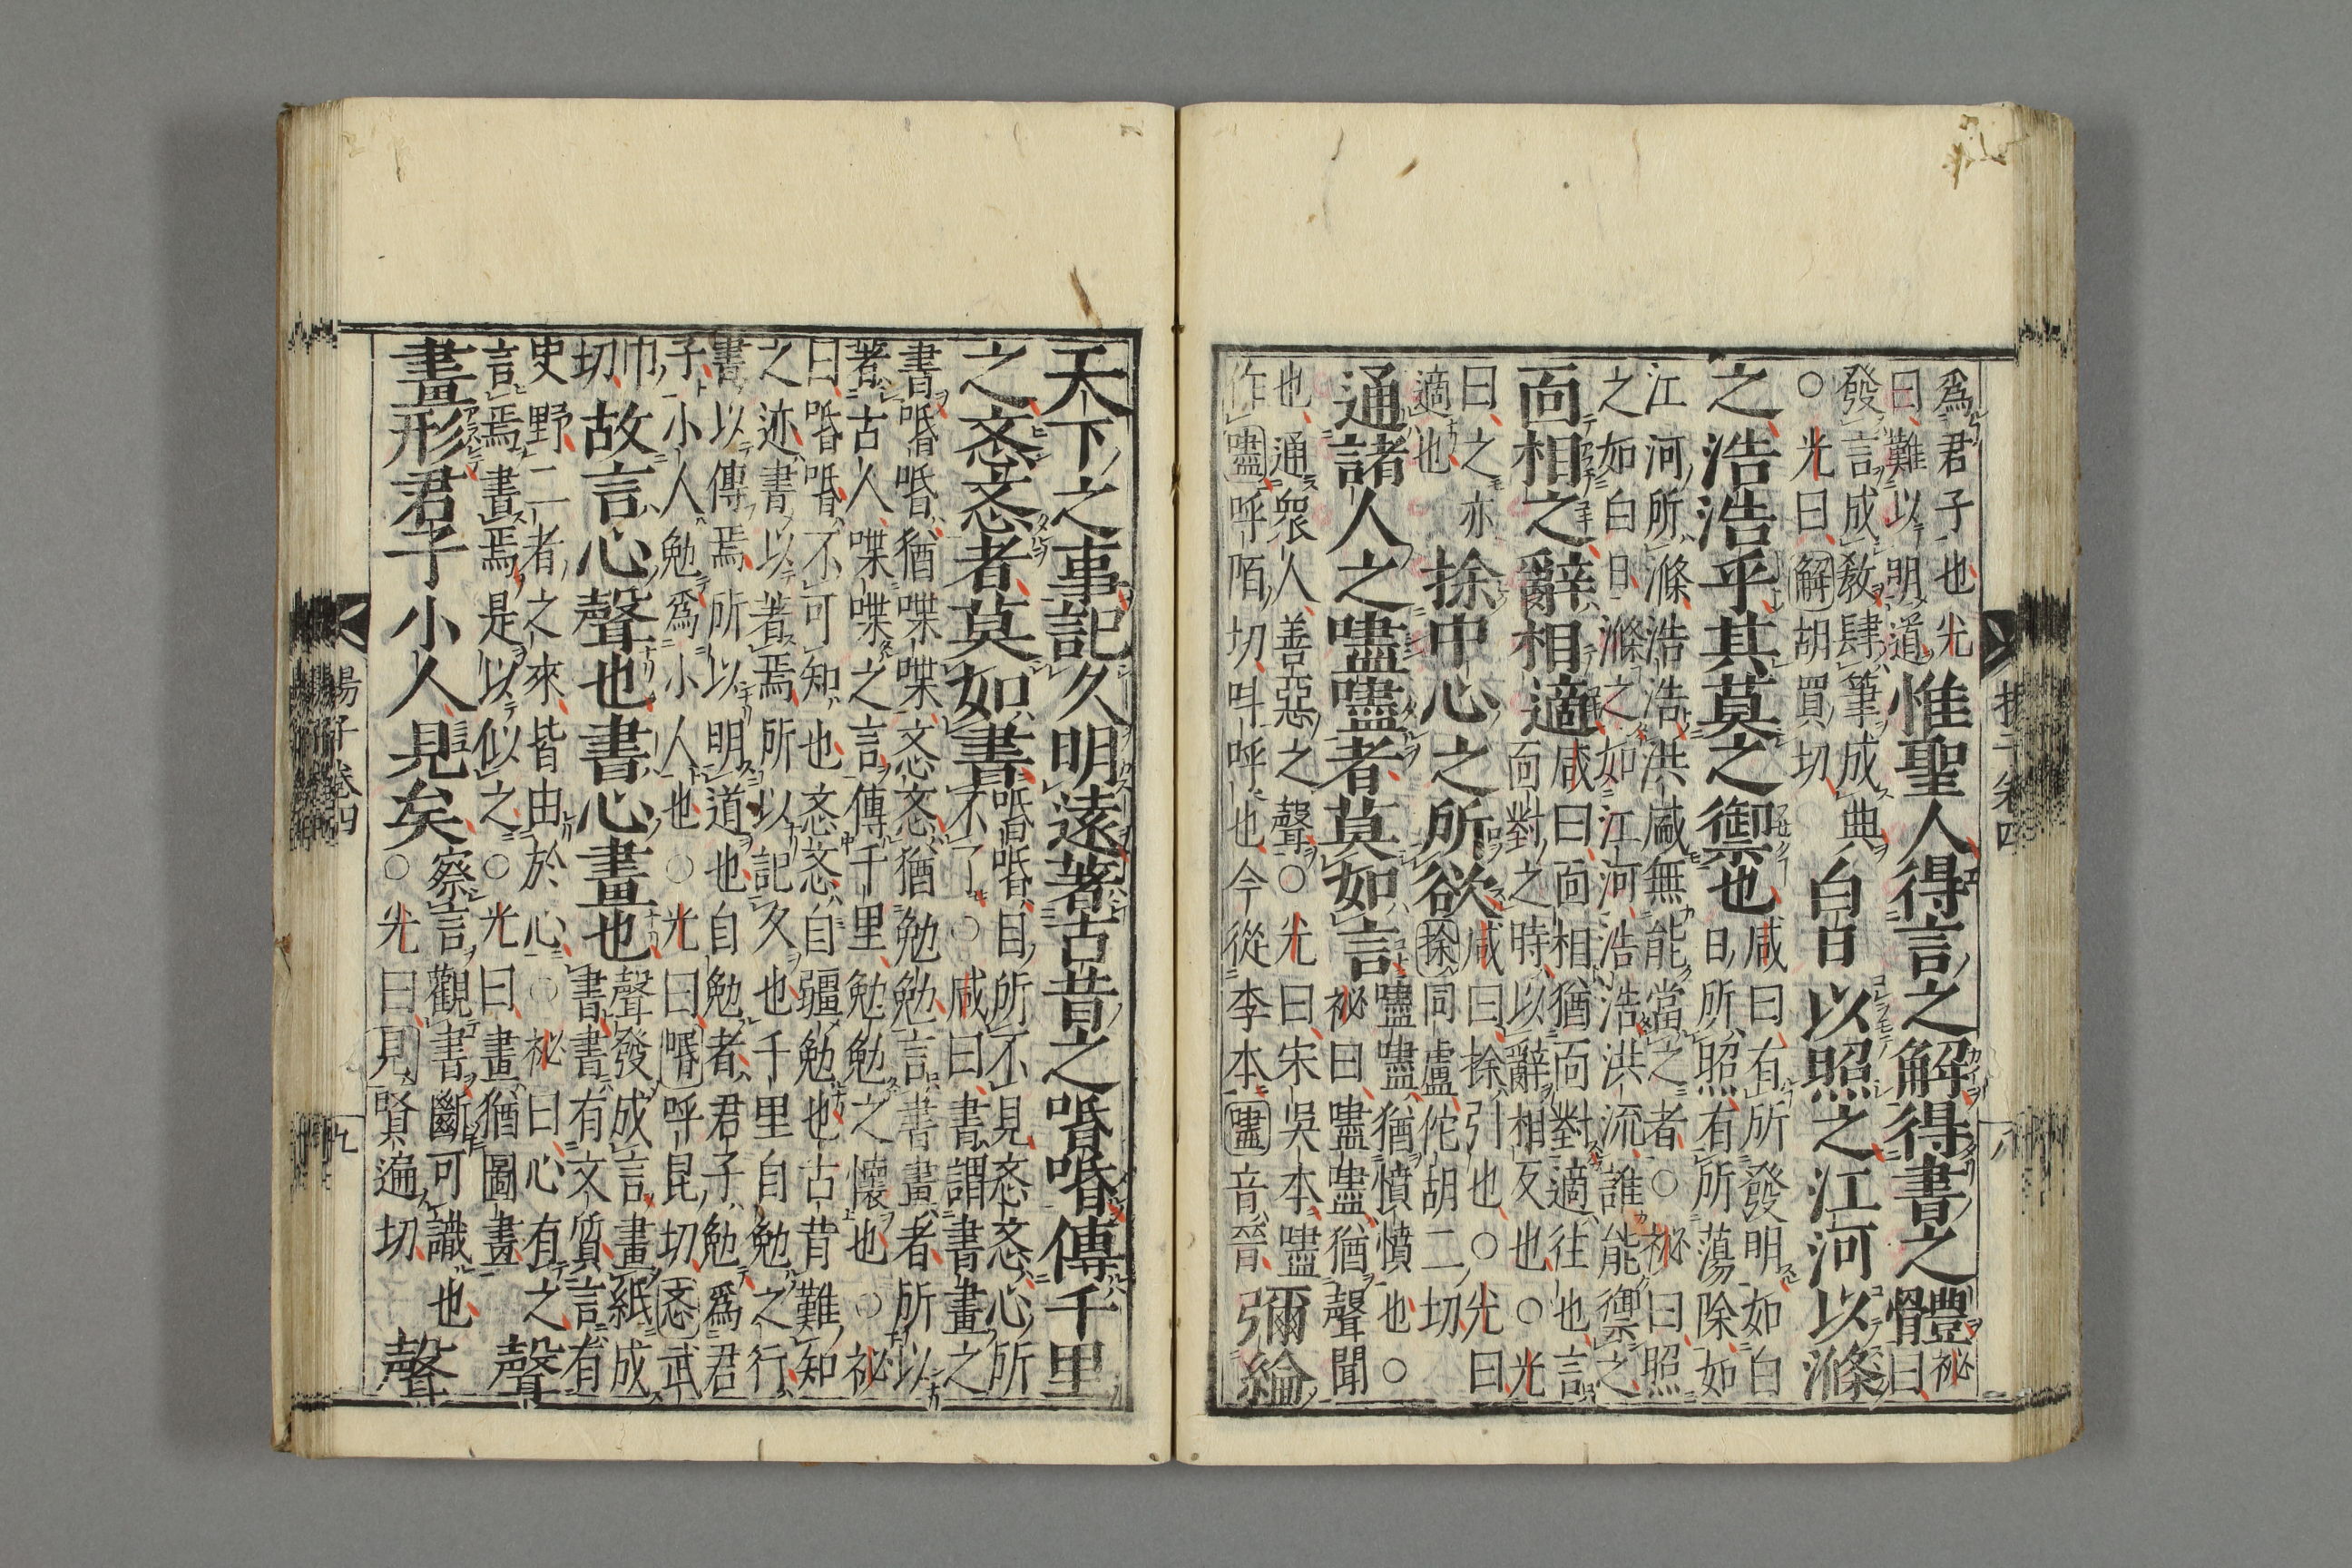 爲君子也光
曰難以明道
惟聖人得言之解得書之體
祕曰
發言成敎肆筆成典
○光曰解胡買切
白日以照之江河以滌
之浩浩乎其莫之禦也
咸曰有所發明如白
日所照有所蕩除如
江河所滌浩浩洪盛無能當之者○祕曰照
之如白日滌之如江河浩浩洪流誰能禦之
面相之辭相適
咸曰面相猶面對適往也言
面對之時以辭相反也○光
曰之亦
適也
捈中心之所欲
咸曰捈引也○光曰
捈同盧佗胡二切
通諸人之嚍嚍者莫如言
嚍嚍猶憤憤也○
祕曰嚍嚍猶聲聞
也通衆人善惡之聲○光曰宋吳本嚍
作嚍呼陌切呌呼也今從李本嚍音晉
彌綸
天下之事記久明遠著古昔之㖧㖧傳千里
之忞忞者莫如書
㖧㖧目所不見忞忞心所
不了○咸曰書謂書畫之
書㖧㖧猶喋喋忞忞猶勉勉言書畫者所以
著古人喋喋之言傳千里勉勉之懷也○祕
曰㖧㖧不可知也忞忞自彊勉也古昔難知
之迹書以著焉所以記久也千里自勉之行
書以傳焉所以明道也自勉者君子勉爲君
子小人勉爲小人也○光曰㖧呼昆切忞武
巾
切
故言心聲也書心畫也
聲發成言畫紙成
書書有文質言有
史野二者之來皆由於心○祕曰心有之
言焉書焉是以似之○光曰畫猶圖畫
聲
畫形君子小人見矣
察言觀書斷可識也
○光曰見賢遍切
聲
揚子卷四
八
揚子卷四
九